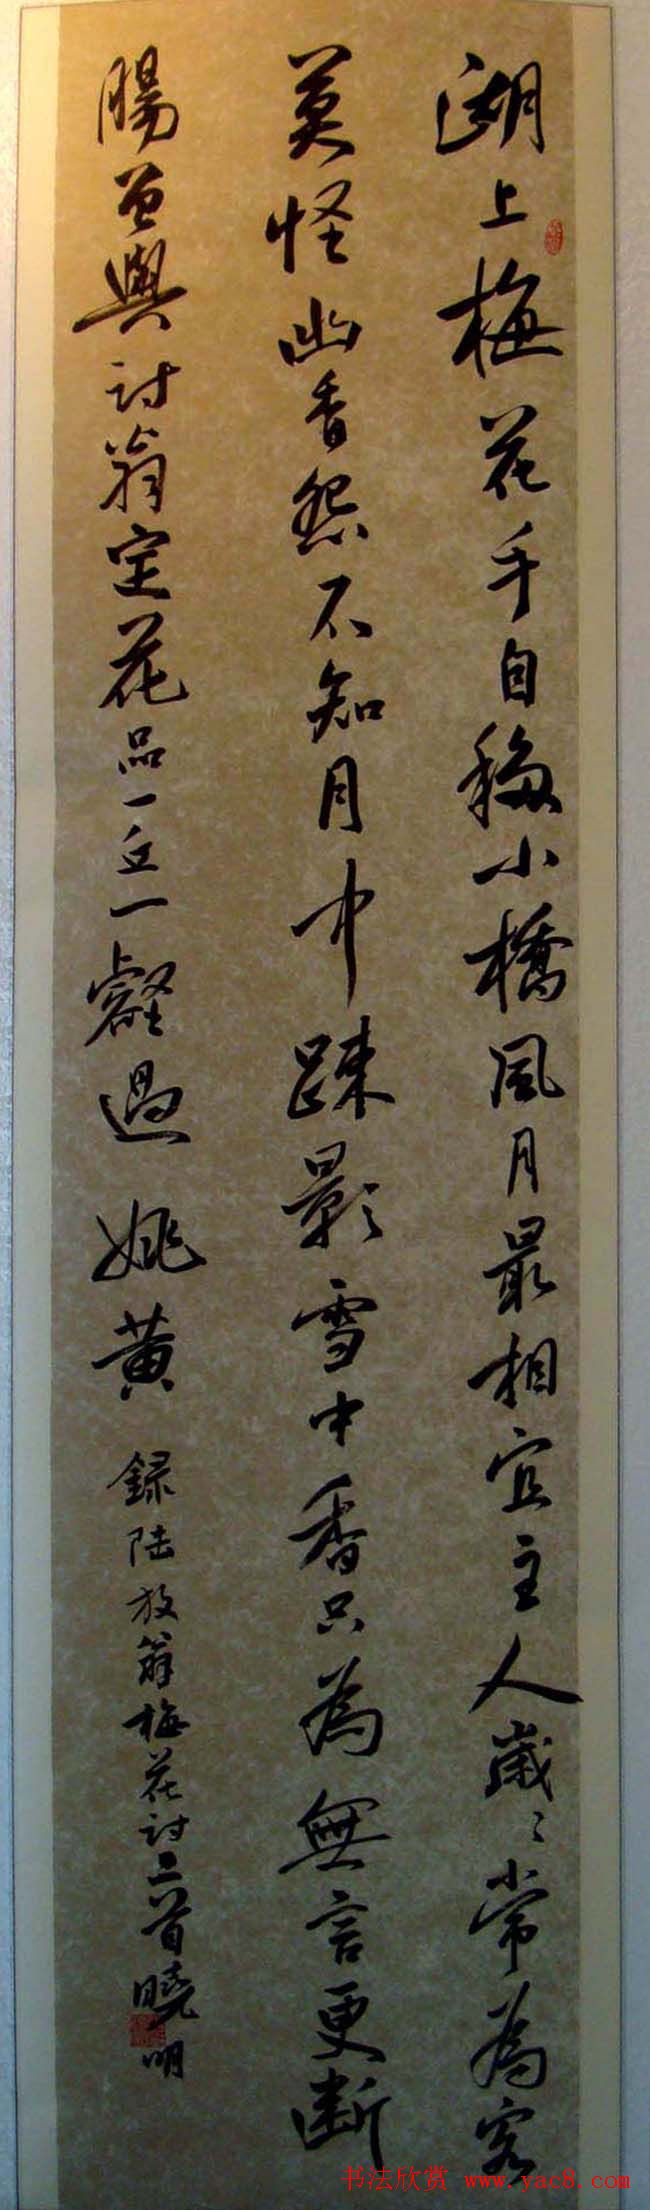 湖上梅花手自移小橋風月最相宜主人歲〻常為客
莫怪幽香怨不知月中疎影雪中香只為無言更斷
腸曾與詩翁定花品一丘一壑過姚黄
録陸放翁梅花詩二首曉明
书法欣赏 www.yac8.com